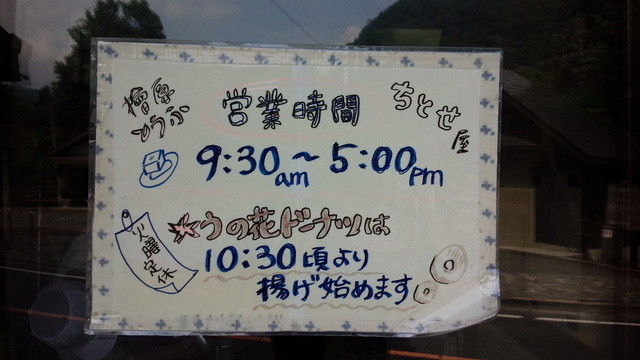 檜原
とうふ
営業時間
ちとせ屋
9:30am～5:00pm
火曜定休
うの花ドーナツは
10:30頃より
揚げ始めます